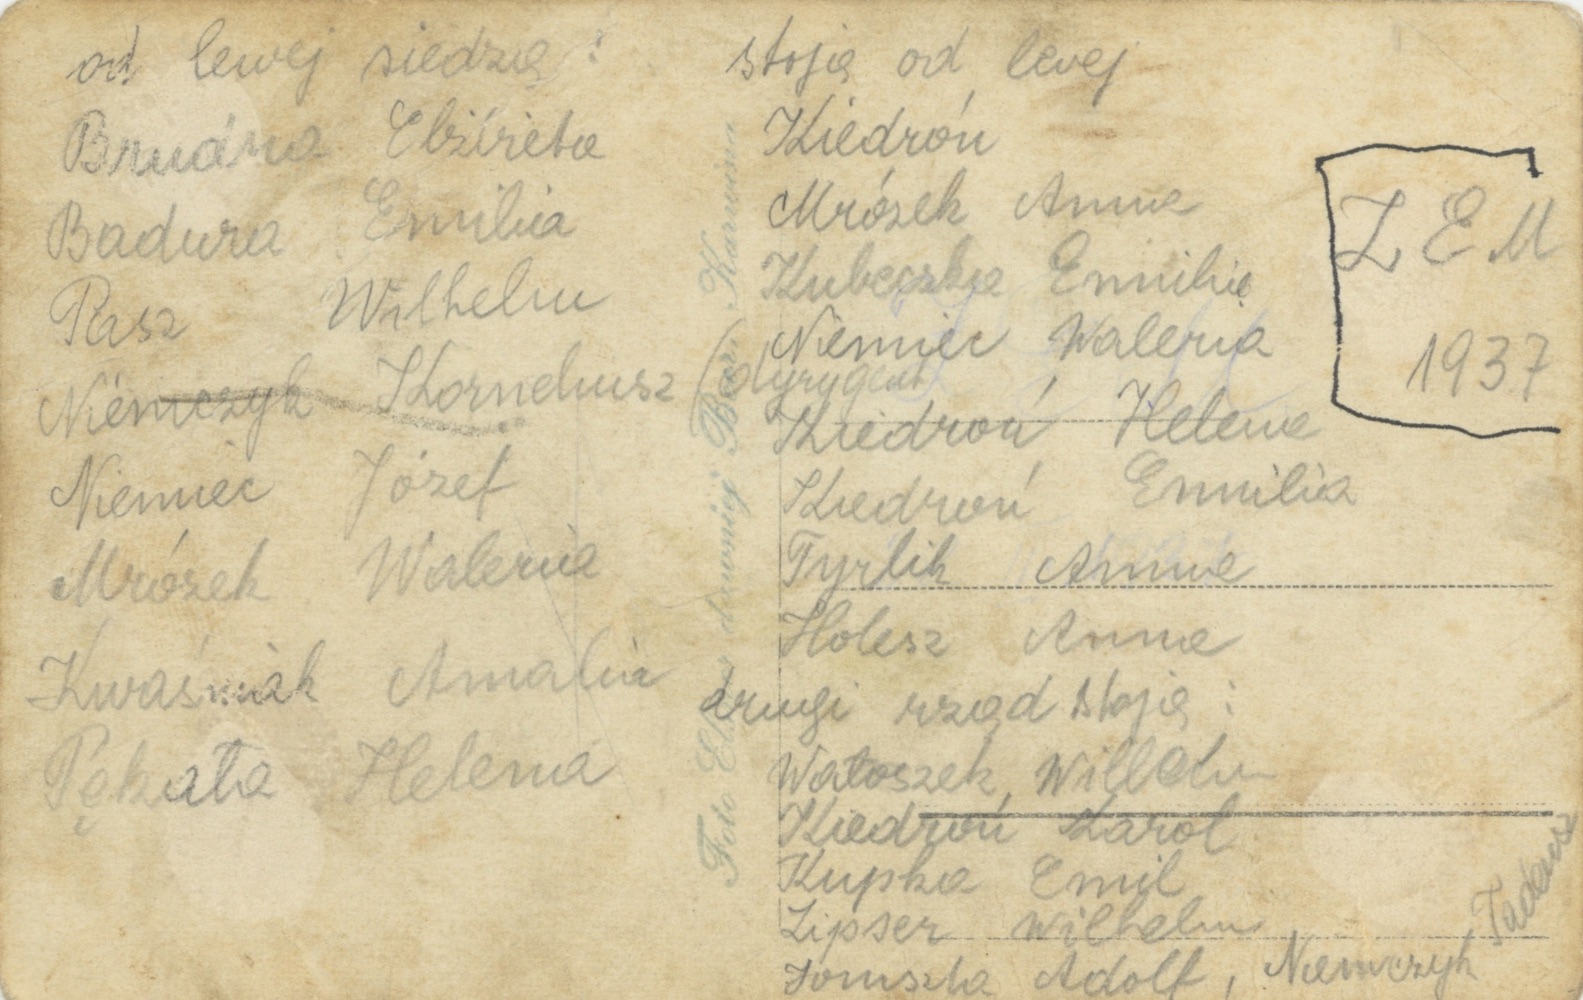 od lewej siedzą :
Elżbieta
Badura Emilia
Pasz Wilhelm
Niemczyk Korneliusz (dyrygent
Niemiec Józef
Mrózek Waleria
Kwaśniak Amalia
Pękała Helena
stoją od lewej
Kiedroń
Mrózek Anna
Kubeczka Emilia
Niemiec Waleria
Kiedroń Helena
Kiedroń Emilia
Tyrlik Anna
Holesz Anna
drugi rząd stoją :
Wałoszek Wilhelm
Kiedroń Karol
Kupka Emil
Lipser Wilhelm
Adolf, Niemczyk Tadeusz
Z E M
1937
Foto dawniej Karwina